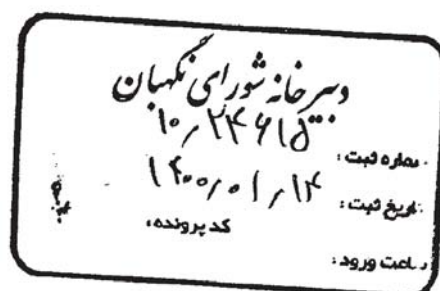 دبیرخانه شورای نگهبان
شماره ثبت: ۱۰/۲۴۶۱۵
تاریخ ثبت: ۱۴۰۰/۰۱/۱۴
کد پرونده:
ساعت ورود: